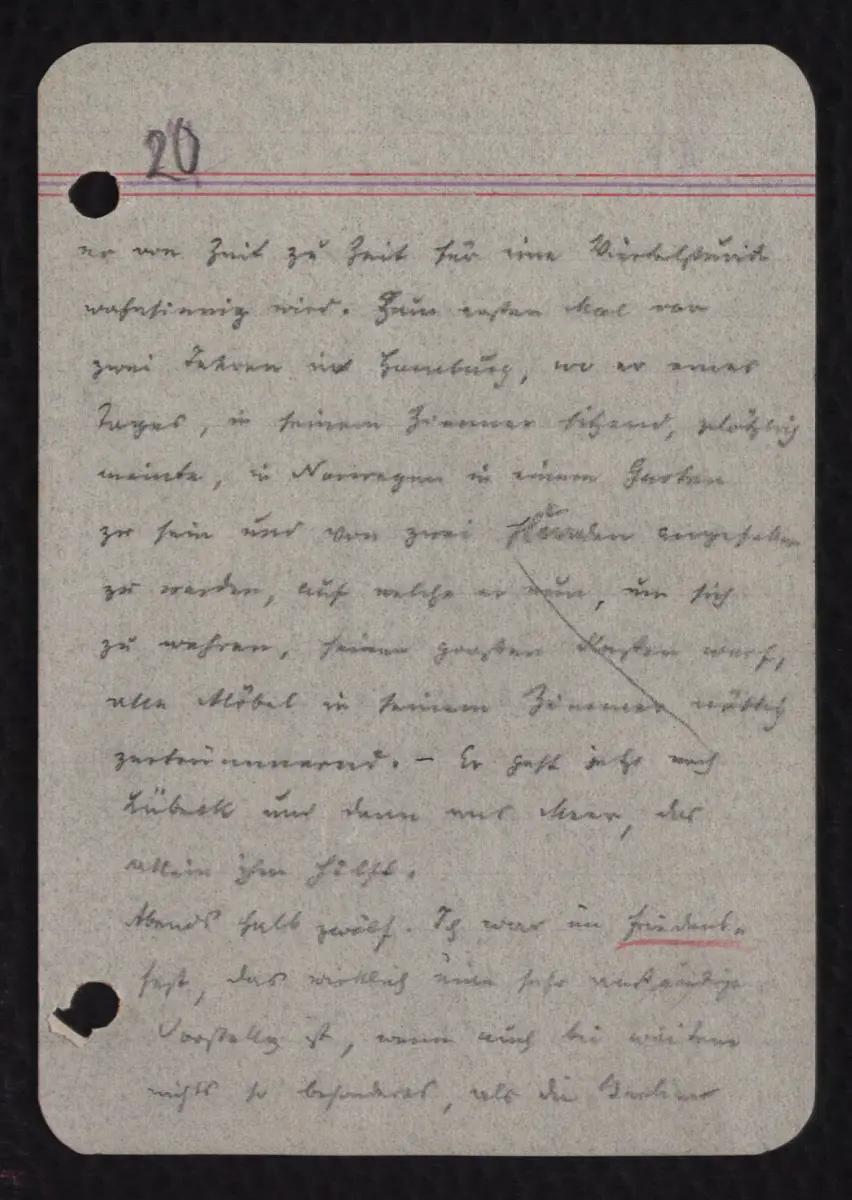 20
er von Zeit zu Zeit für eine Viertelstunde
wahnsinnig wird. Zum ersten Mal vor
zwei Jahren in Hamburg, wo er eines
Tages, in seinem Zimmer sitzend, plötzlich
meinte, in Norwegen in einem Garten
zu sein und von zwei Hunden angefallen
zu werden, auf welche er nun, um sich
zu wehren, seinen grossen Kasten warf,
alle Möbel in seinem Zimmer völlig
zertrümmernd. – Er geht jetzt nach
Lübeck und dann ans Meer, das
allein ihm hülfe.
Abends halb zwölf. Ich war im Friedens-
fest, das wirklich eine sehr anständige
Vorstellg ist, wenn auch bei weitem
nichts so besonderes, als die Berliner